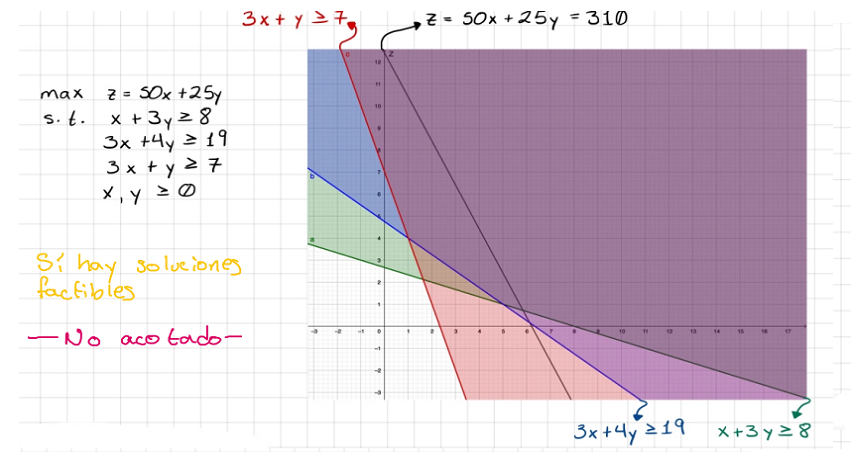 3x + y ≥ 7
z = 50x + 25y = 310
max z = 50x + 25y
s. t. x + 3y ≥ 8
3x + 4y ≥ 19
3x + y ≥ 7
x, y ≥ 0
Sí hay soluciones
factibles
— No acotado —
c
z
12
11
10
9
8
7
6
5
4
3
2
1
b
a
-3 -2 -1 0 1 2 3 4 5 6 7 8 9 10 11 12 13 14 15 16 17
-1
-2
-3
3x + 4y ≥ 19
x + 3y ≥ 8